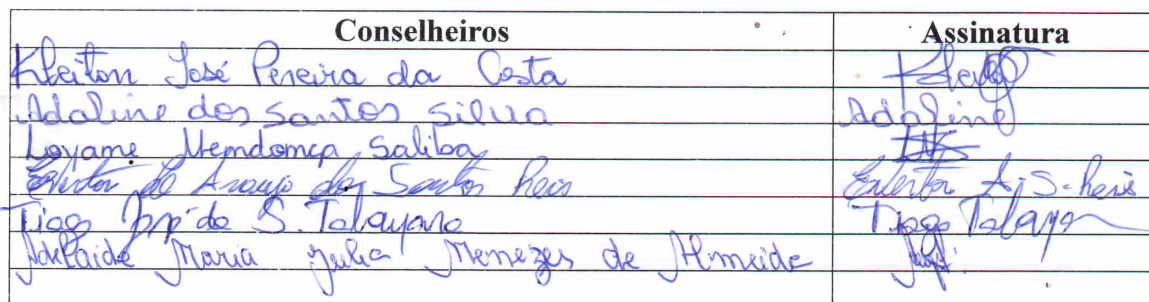 Conselheiros Assinatura
Kleiton José Pereira da Costa
Adaline dos Santos Silva Adaline
Loyane Mendonça Saliba
Everton de Araujo dos Santos Reis Everton A. S. Reis
Tiago S. Tiago
Adelaide Maria Julia Menezes de Almeida